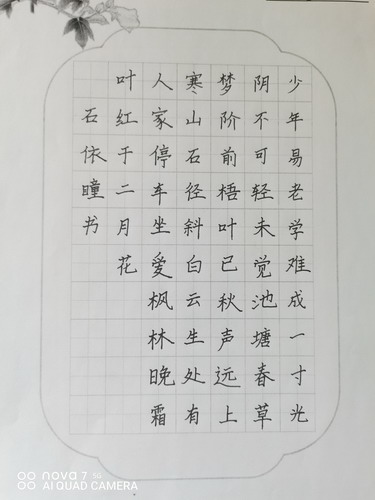 少年易老学难成一寸光
阴不可轻未觉池塘春草
梦阶前梧叶已秋声远上
寒山石径斜白云生处有
人家停车坐爱枫林晚霜
叶红于二月花
石依瞳书
nova 7 5G
AI QUAD CAMERA